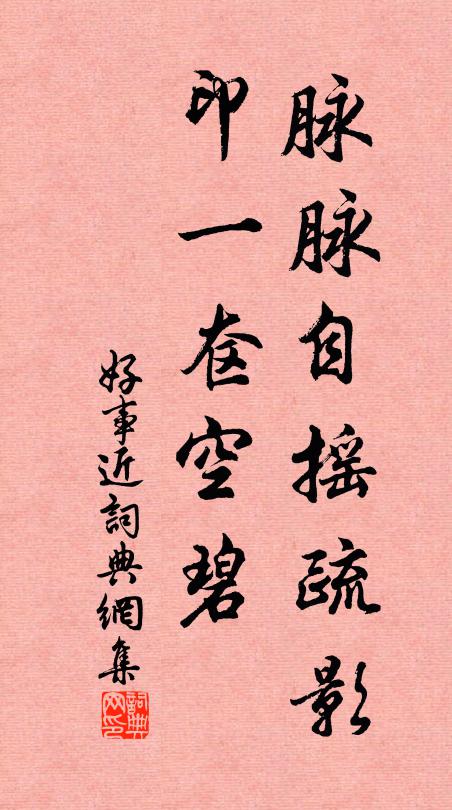 脉脉自摇疏影
印一奁空碧
好事近詞典網集
詞典网印